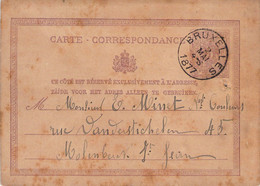 CARTE-CORRESPONDANCE
BRUXELLES
MAI
1877
CE CÔTÉ EST RÉSERVÉ EXCLUSIVEMENT À L'ADRESSE.
ZIJDE VOOR HET ADRES ALLEEN TE GEBRUIKEN.
à Monsieur E. Minet
rue Vandestichelen 45
Molenbeek St Jean